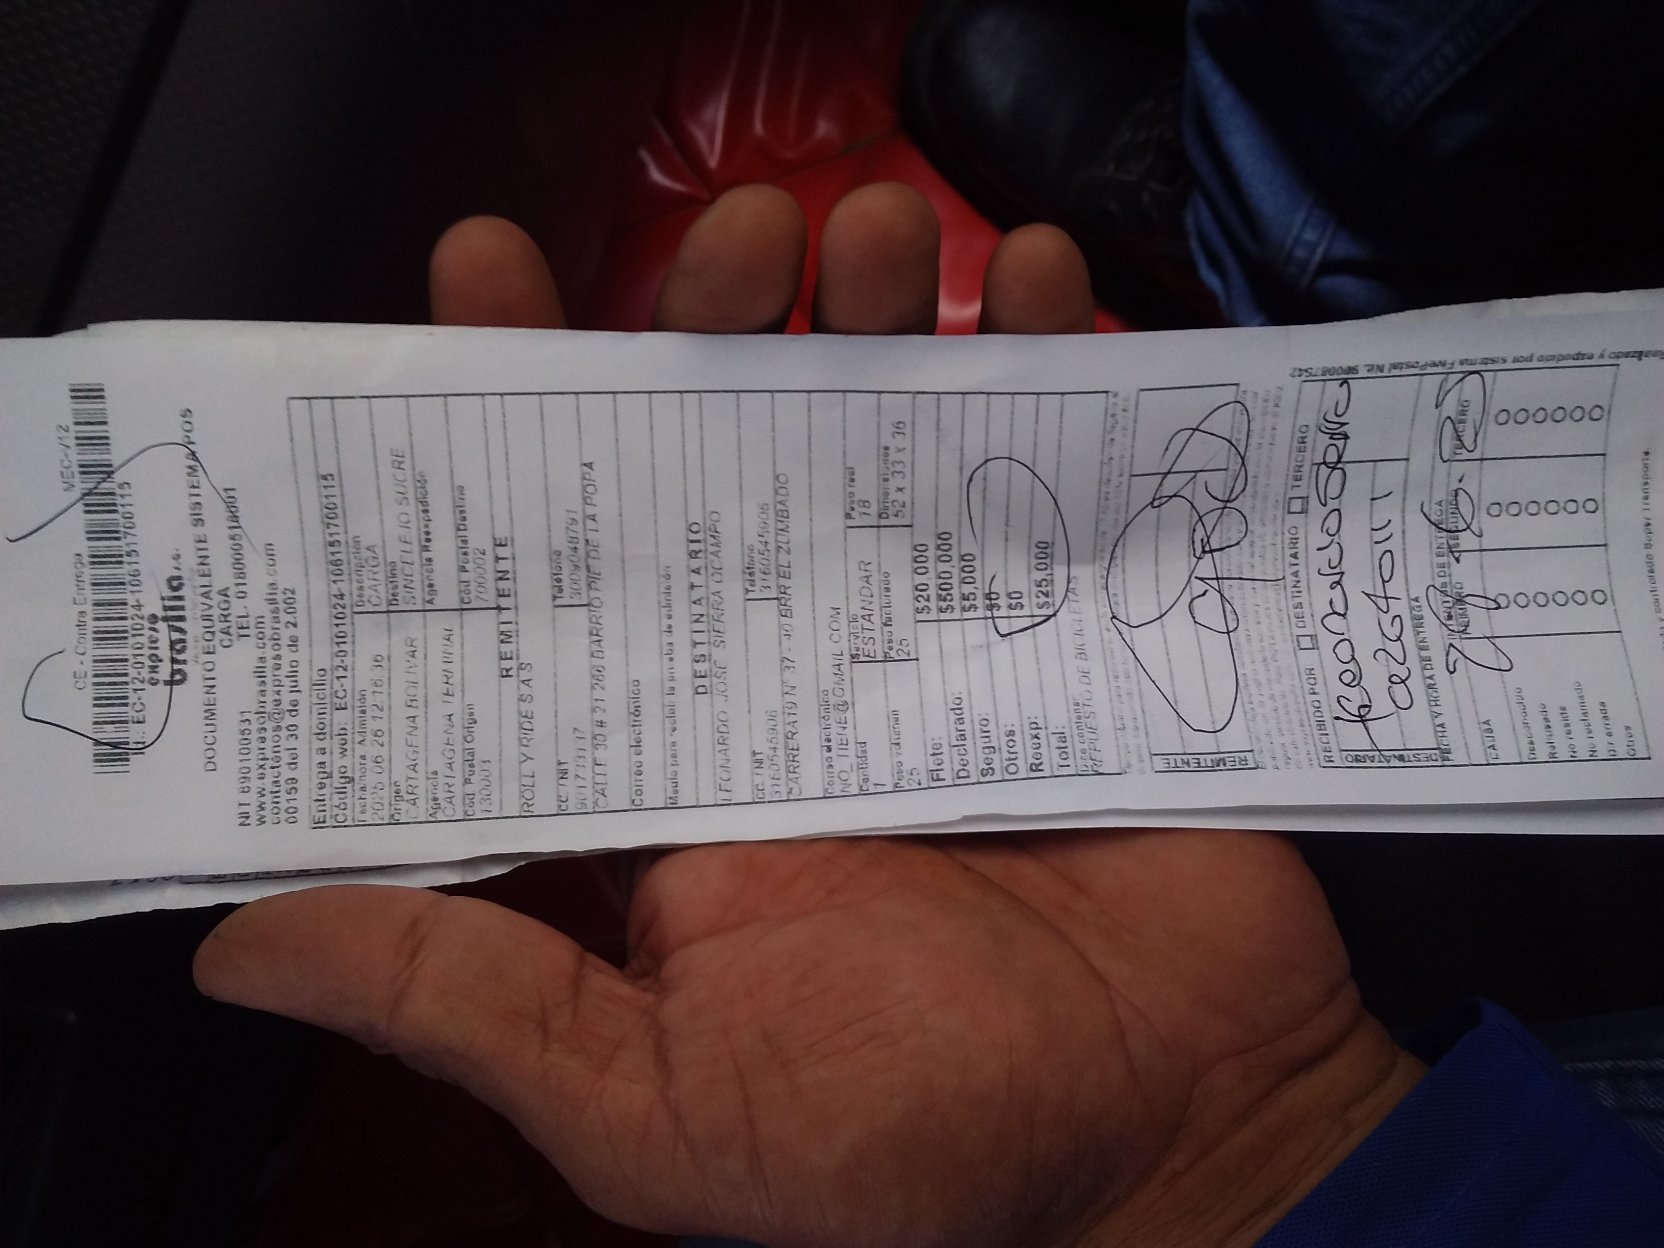 CE - Contra Entrega
MEC-/12
EC-12-0101024-106151700115
expreso
brasilia s.a.
DOCUMENTO EQUIVALENTE SISTEMA POS
CARGA
NIT 890100531 TEL. 018000518001
www.expresobrasilia.com
contactenos@expresobrasilia.com
00159 del 30 de julio de 2.002
Entrega a domicilio
Código web: EC-12-0101024-106151700115
Fecha/Hora Admisión
2025 06 26 12:16:36
Descripción
CARGA
Origen
CARTAGENA BOLIVAR
Destino
SINCELEJO SUCRE
Agencia
CARTAGENA TERMINAL
Agencia Reexpedición
Cód Postal Origen
130001
Cód Postal Destino
700002
REMITENTE
ROLL Y RIDE S A S
CC / NIT
Teléfono
3009048791
CALLE 30 # 21 266 BARRIO PIE DE LA POPA
Correo electrónico
Medio para recibir la prueba de admisión
DESTINATARIO
LEONARDO JOSE SIERRA OCAMPO
CC / NIT
3160545906
Teléfono
3160545906
CARRERA 19 N° 37 - 40 BRR EL ZUMBADO
Correo electrónico
NO_TIENE@GMAIL.COM
Cantidad
1
Servicio
ESTANDAR
Peso real
18
Peso volumen
25
Peso facturado
25
Dimensiones
52 x 33 x 36
Flete: $20,000
Declarado: $500,000
Seguro: $5,000
Otros: $0
Reexp: $0
Total: $25,000
Dice contener
REPUESTO DE BICICLETAS
REMITENTE
RECIBIDO POR DESTINATARIO TERCERO
DESTINATARIO
FECHA Y HORA DE ENTREGA
INTENTOS DE ENTREGA
CAUSA PRIMERO SEGUNDO TERCERO
Desconocido
Rehusado
No reside
No reclamado
Dir errada
Otros
Realizado y expedido por sistema FivePostal Nit. 900087542